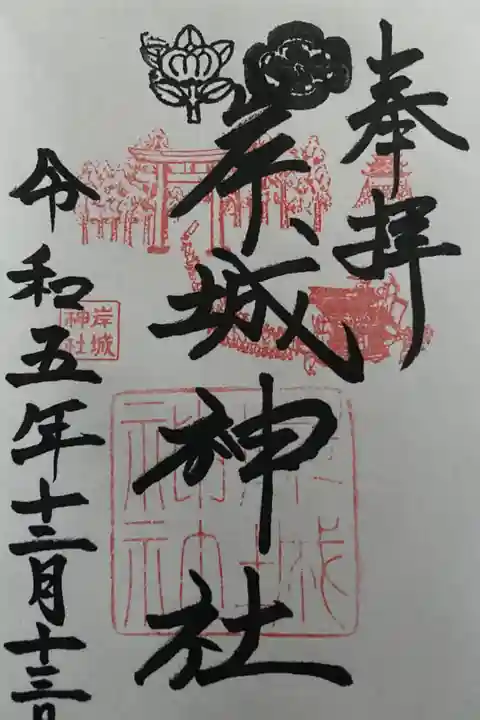 奉拝
岸城神社
岸城
神社
岸城
神社
令和五年十二月十三日